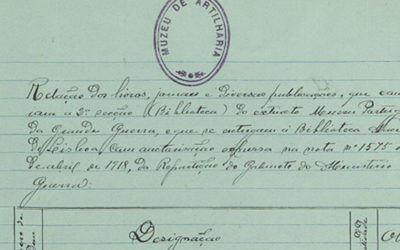 MUZEU DE ARTILHARIA
Relação dos livros, jornaes e diversas publicações, que
vam a 3ª secção (Biblioteca) do extinto Museu Portug
da Grande Guerra, e que se entregam á Biblioteca
de Lisboa, com auctorização expressa na nota nº 1575
de abril de 1918, da Repartição do Gabinete do Ministerio
Guerra:
Designação